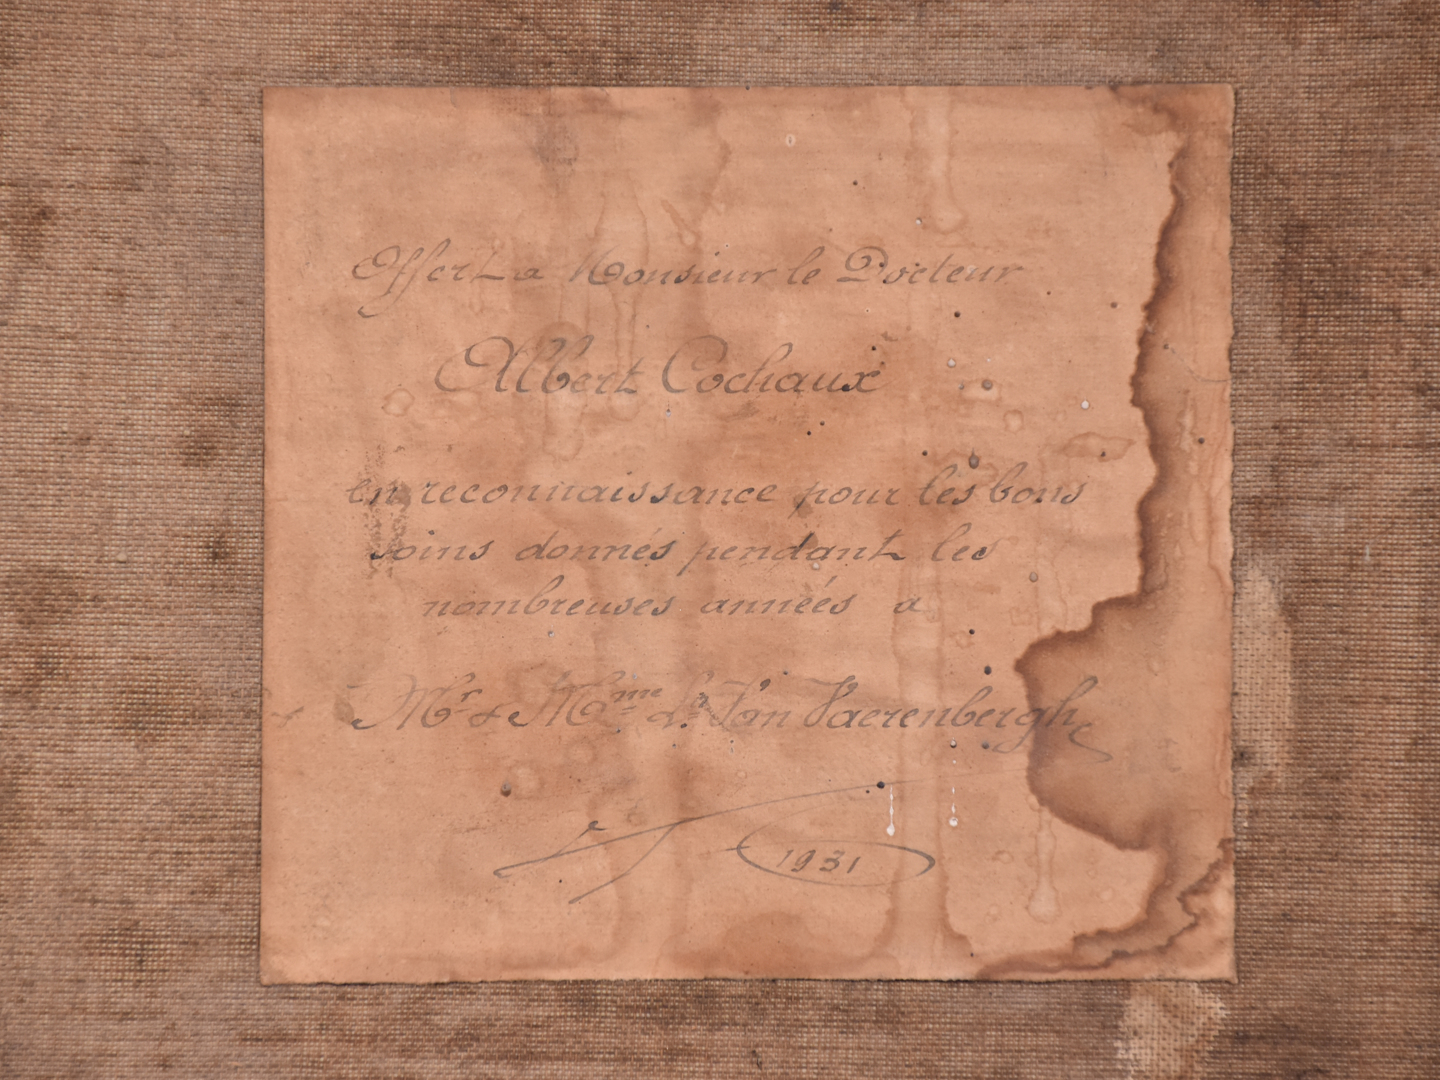 Offert a Monsieur le Docteur
Albert Cochaux
en reconnaissance pour les bons
soins donnés pendant les
nombreuses années a
Mr & Mme Van Vaerenbergh
1931